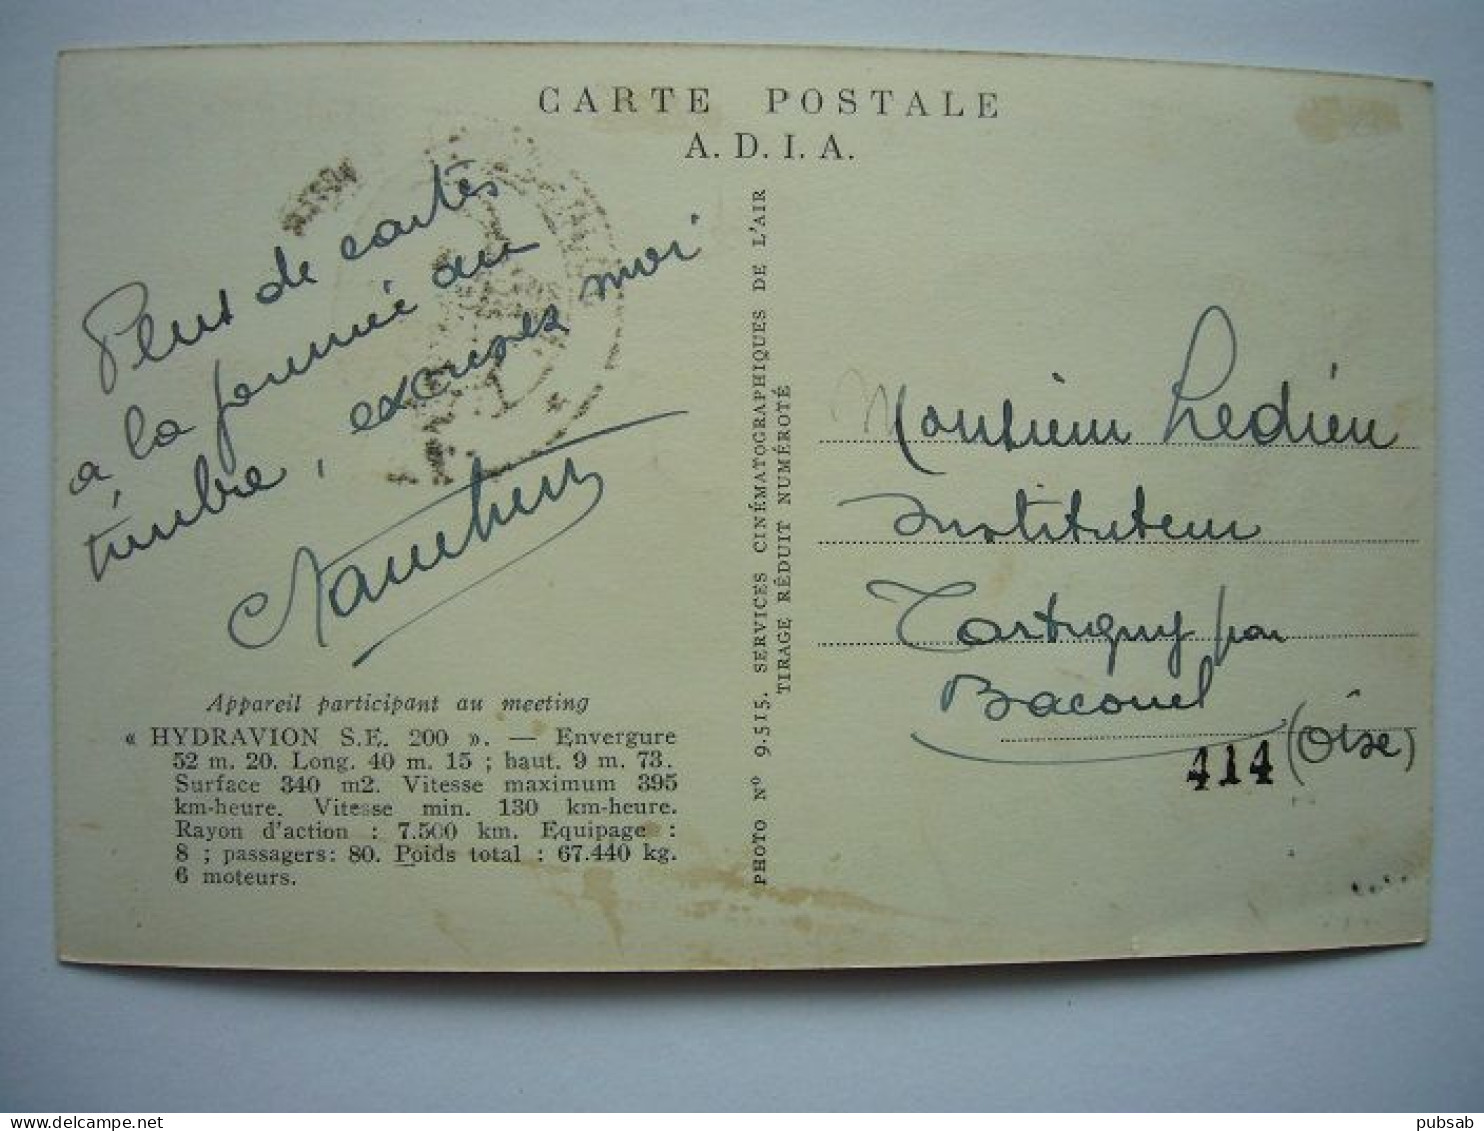 CARTE POSTALE
A. D. I. A.
Plus de cartes
a la journée du
timbre, excuses moi
Appareil participant au meeting
« HYDRAVION S.E. 200 ». — Envergure
52 m. 20. Long. 40 m. 15 ; haut. 9 m. 73.
Surface 340 m2. Vitesse maximum 395
km-heure. Vitesse min. 130 km-heure.
Rayon d'action : 7.500 km. Equipage :
8 ; passagers: 80. Poids total : 67.440 kg.
6 moteurs.
PHOTO Nº 9.515. SERVICES CINÉMATOGRAPHIQUES DE L'AIR
TIRAGE RÉDUIT NUMÉROTÉ
Monsieur Ledieu
Instituteur
Tartigny par
Bacouel
(Oise)
414
pubsab
delcampe.net